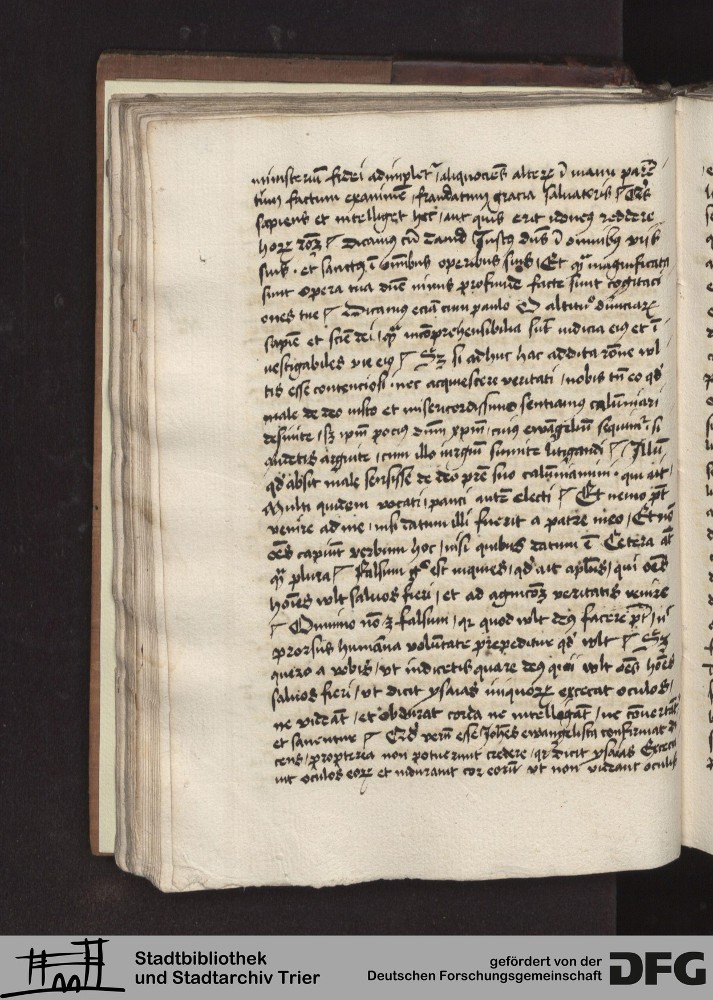 ministeriū fidei adimplet aliquociens altere ī manu parē
tum factum examinē fraudatum gracia salvatoris Q̄s
sapiens et intelliget hec aut quis erit idoneꝰ reddere
horꝝ rōeꝫ Dicamus cū david Justꝰ dn̄s ī omnibꝰ vijs
suis et sanctus ī om̄ibus operibus suis Et qꝫ magnificata
sunt opera tua dn̄e nimis profunde facte sunt cogitaci
ones tue Dicamus eciā cum paulo O altitudo diviciarꝝ
sapiē et sciē dei qꝫ incōprehensibilia sūt iudicia eiꝰ et ī
vestigabiles vie eiꝰ Sꝫ si adhuc hac addita rōne vl
tis esse contenciosi nec acquiescere veritati nobis tn̄ eo qd
male de deo iusto et misericordissimo sentiamus calūniari
desinite sꝫ ipm̄ pocius dnm̄ xpm̄ cuius ewāgelium sequimur si
audetis arguite cum illo iurgiū sumite litigandi Illū
qd absit male sensisse de deo prē suo calūniamini qui ait
Multi quidem vocati pauci autē electi Et nemo pōt
venire ad me nisi datum illi fuerit a patre meo Et nō
oēs capiunt verbum hoc nisi quibus datum ē Cetera
plura Falsum est inquies qd ait aplus qui oēs
hoīes vlt salvos fieri et ad agnicōeꝫ veritatis venire
Omnino nō ē falsum qꝛ quod vlt deꝰ facere pōt nō
prorsus humana voluntate prepeditur qd vlt Sꝫ
quero a vobis ut iudicetis quare deꝰ qui vlt oēs hoēs
salvos fieri ut dicit ysaias iniquorꝝ excecat oculos
ne videāt et obdurat corda ne intellegāt ne cōvertāt
et sanentur Qd verū esse Johēs ewangelista confirmat di
cens propterea non potuerunt credere qꝛ dicit ysaias Exceca
vit oculos eorꝝ et induravit cor eorū ut non videant oculis
Stadtbibliothek
und Stadtarchiv Trier
gefördert von der
Deutschen Forschungsgemeinschaft
DFG